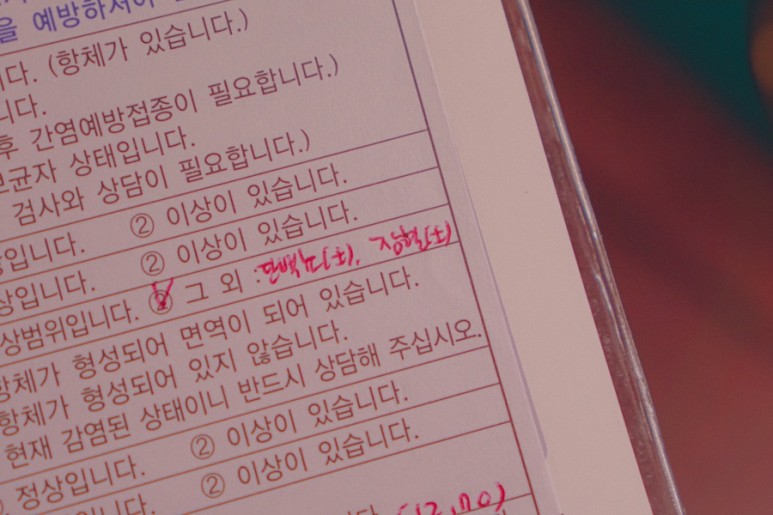 을 예방하셔야
니다. (항체가 있습니다.)
니다.
후 간염예방접종이 필요합니다.)
보균자 상태입니다.
검사와 상담이 필요합니다.)
상입니다. ② 이상이 있습니다.
상입니다. ② 이상이 있습니다.
상범위입니다. ② 그 외 : 단백뇨(±), 잠혈(±)
항체가 형성되어 면역이 되어 있습니다.
항체가 형성되어 있지 않습니다.
현재 감염된 상태이니 반드시 상담해 주십시오.
정상입니다. ② 이상이 있습니다.
입니다. ② 이상이 있습니다.